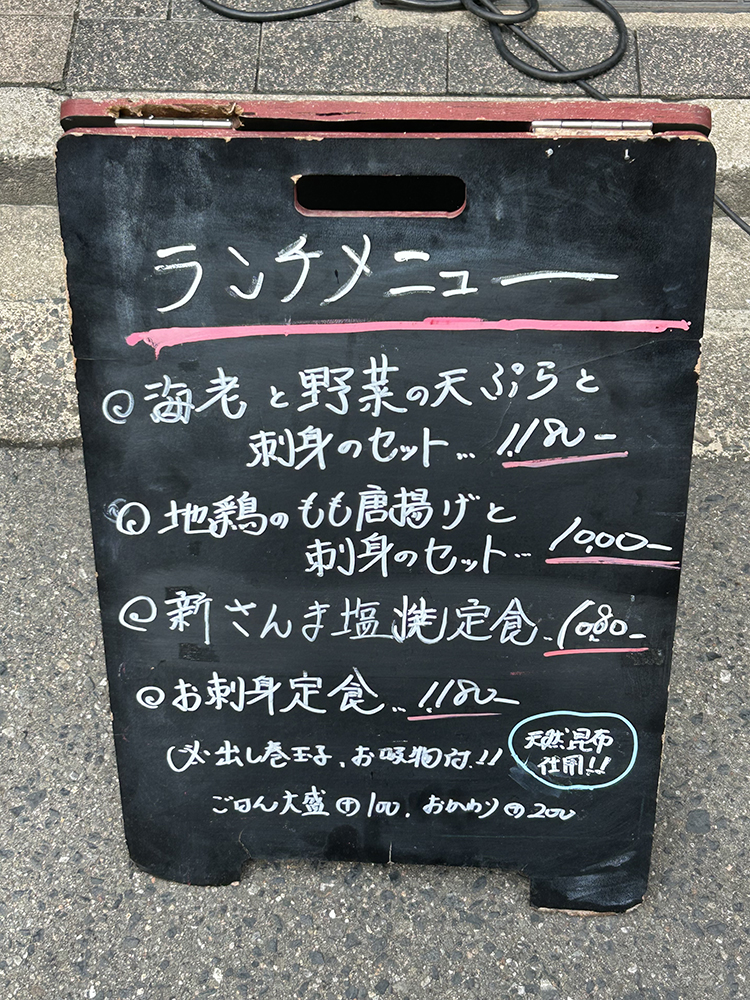 ランチメニュー
海老と野菜の天ぷらと
刺身のセット… 1,180-
地鶏のもも唐揚げと
刺身のセット… 1,000-
新さんま塩焼定食… 1,080-
お刺身定食… 1,180-
出し巻玉子、お吸物付!!
天然昆布
使用!!
ごはん大盛⊕100、おかわり⊕200